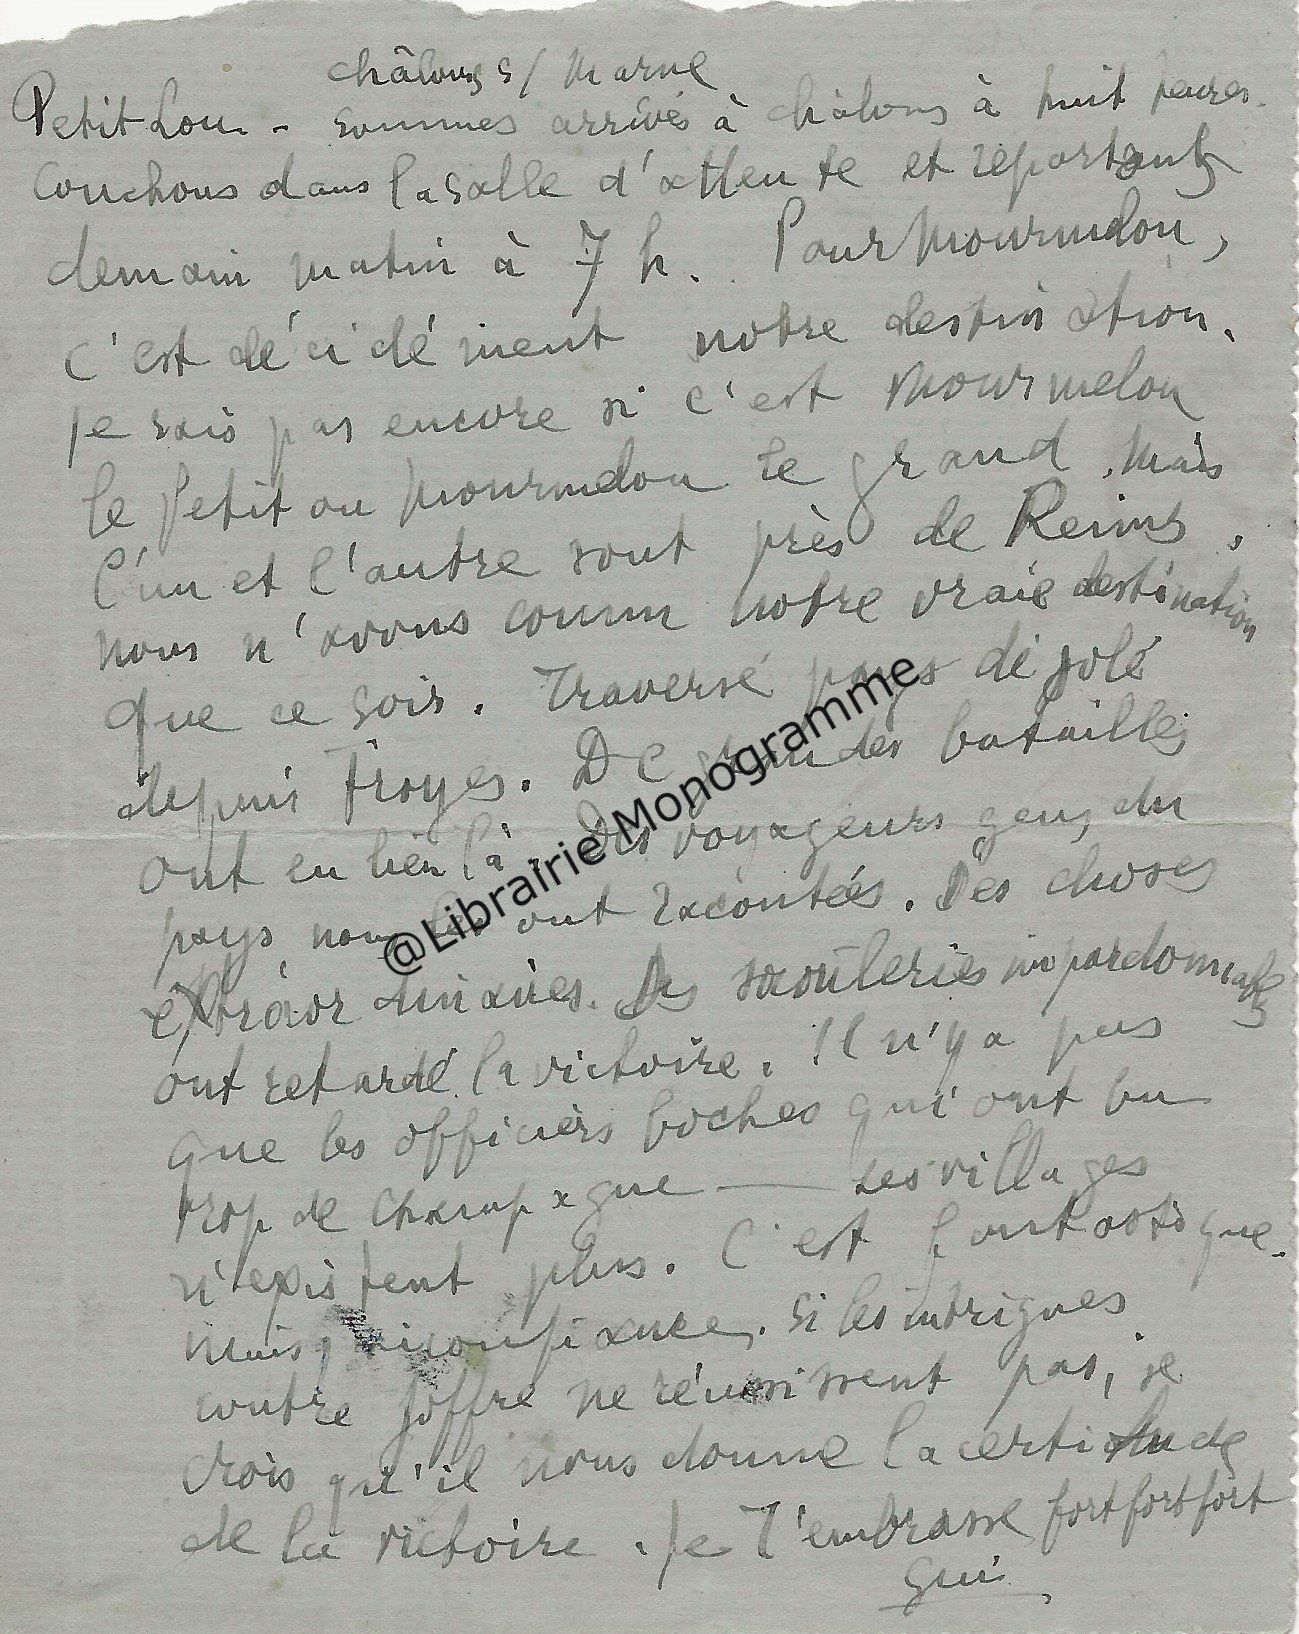 châlons s/ Marne
Petit Lou - sommes arrivés à châlons à huit heures.
Couchons dans la salle d'attente et repartons
demain matin à 7 h. Pour Mourmelon,
c'est décidément notre destination.
je sais pas encore si c'est Mourmelon
le Petit ou Mourmelon le grand. Mais
l'un et l'autre sont près de Reims.
nous n'avons connu notre vraie destination
que ce soir. Traversé pays désolé
depuis Troyes. De grandes batailles
ont eu lieu là. Des voyageurs gens du
pays nous les ont racontées. Des choses
extraordinaires. Des saouleries impardonnables
ont retardé la victoire. Il n'y a pas
que les officiers boches qui ont bu
trop de champagne — Les villages
n'existent plus. C'est fantastique.
Mais, confiance. Si les intrigues
contre Joffre ne réussissent pas, je
crois qu'il nous donne la certitude
de la victoire. Je t'embrasse fort fort fort
Gui.
@Librairie Monogramme